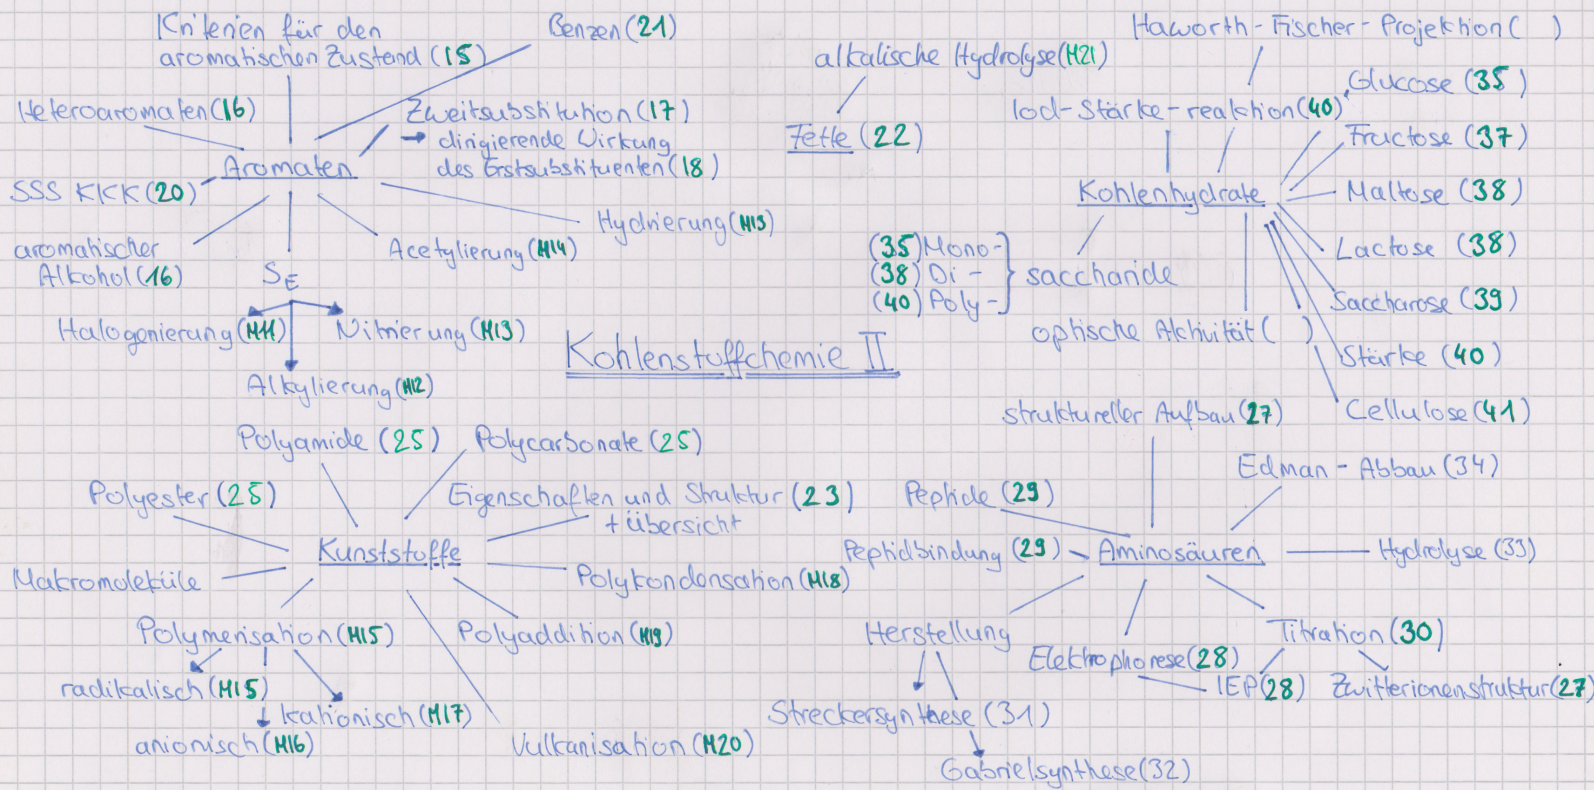 Kriterien für den
aromatischen Zustand (15)
Benzen (21)
Heteroaromaten (16)
Zweitsubstitution (17)
→ dirigierende Wirkung
des Erstsubstituenten (18)
Aromaten
SSS KKK (20)
Hydrierung (M13)
aromatischer
Alkohol (16)
Acetylierung (M14)
SE
Halogenierung (M11)
Nitrierung (M13)
Alkylierung (M12)
alkalische Hydrolyse (M21)
Fette (22)
Haworth-Fischer-Projektion ( )
Iod-Stärke-reaktion (40)
Glucose (35)
Fructose (37)
Kohlenhydrate
Maltose (38)
Lactose (38)
(35) Mono-
(38) Di-
(40) Poly-
saccharide
Saccharose (39)
optische Aktivität ( )
Stärke (40)
Cellulose (41)
Kohlenstoffchemie II
Polyamide (25)
Polycarbonate (25)
Polyester (25)
Eigenschaften und Struktur (23)
+ Übersicht
Kunststoffe
Makromoleküle
Polykondensation (M18)
Polymerisation (M15)
Polyaddition (M19)
radikalisch (M15)
kationisch (M17)
anionisch (M16)
Vulkanisation (M20)
struktureller Aufbau (27)
Edman-Abbau (34)
Peptide (29)
Peptidbindung (29)
Aminosäuren
Hydrolyse (33)
Herstellung
Titration (30)
Elektrophorese (28)
IEP (28)
Zwitterionenstruktur (27)
Streckersynthese (31)
Gabrielsynthese (32)